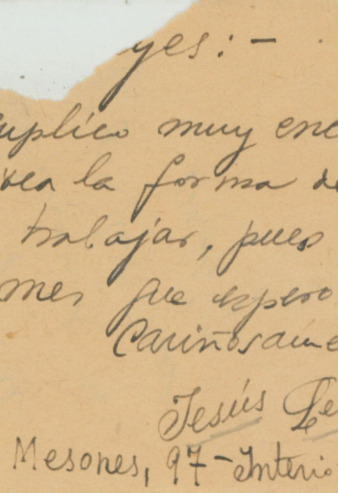 yes:-
uplico muy enc
vea la forma de
trabajar, pues
mes que espero
Cariñosame
Jesús
Mesones, 97-Interio